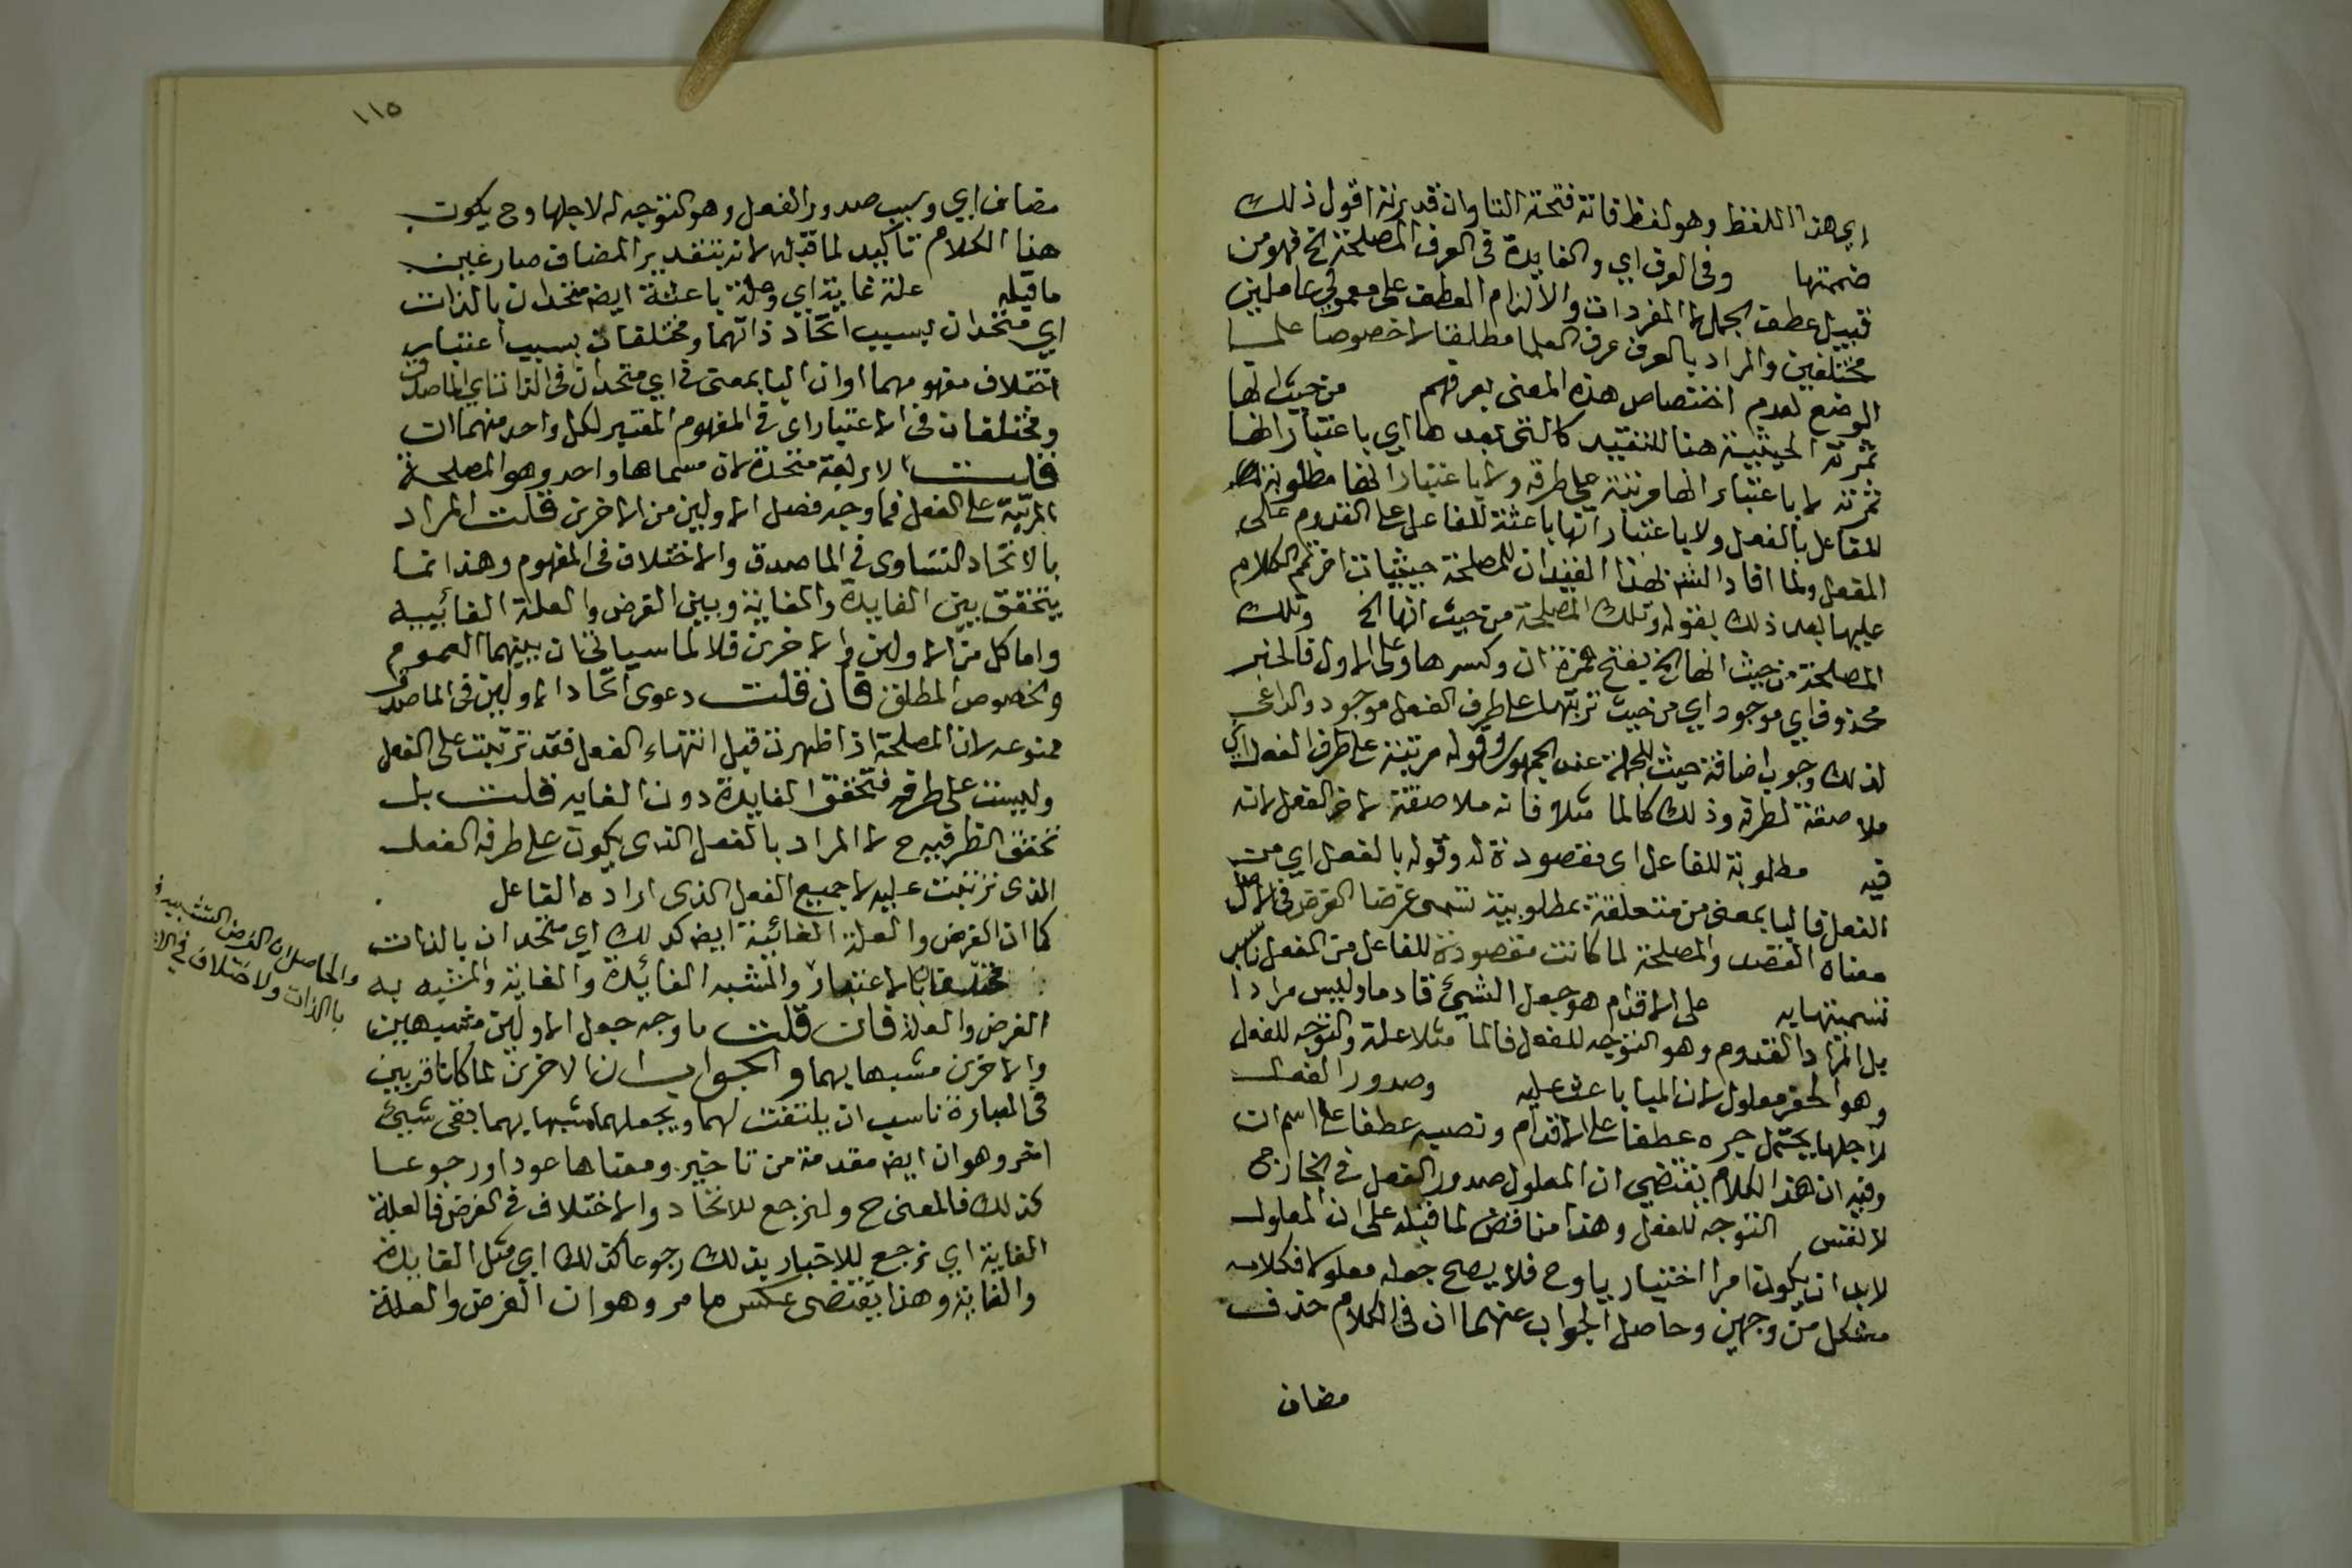 اي هذا اللفظ وهو لفظ فانه فتحة التا وان قدرته اقول ذلك
ضمتها وفي العرف اي والفايدة في العرف المصلحة الخ فهو من
قبيل عطف الجمل لا المفردات والا لزم العطف على معمولي عاملين
مختلفين والمراد بالعرف عرف العلما مطلقا لا خصوصا علما
الوضع لعدم اختصاص هذه المعنى بعرفهم من حيث انها
ثمرته الحيثية هنا للتقييد كالتي بعدها اي باعتبار انها
ثمرته لا باعتبار انها مرتبة على طرفه ولا باعتبار انها مطلوبة
للفاعل بالفعل ولا باعتبار انها باعثة للفاعل على القدوم على
الفعل ولما افاد الش بهذا القيد ان للمصلحة حيثيات اخر تمم الكلام
عليها بعد ذلك بقوله وتلك المصلحة من حيث انها الخ وتلك
المصلحة من حيث انها الخ بفتح همزة ان وكسرها وعلى الاول فالخبر
محذوف اي موجود اي من حيث ترتبها على طرف الفعل موجود والداعي
لذلك وجوب اضافة حيث للجملة عند الجمهور وقوله مرتبة على طرف الفعل اي
ملاصقة لطرفه وذلك كالما مثلا فانه ملاصقة لاخر الفعل لانه
فيه مطلوبة للفاعل اي مقصودة له وقوله بالفعل اي من
الفعل فالبا بمعنى من متعلقة بمطلوبية تسمى غرضا الغرض في الاصل
معناه القصد والمصلحة لما كانت مقصودة للفاعل من الفعل ناسب
تسميتها به على الاقدام هو جعل الشيئ قادما وليس مرادا
بل المراد القدوم وهو التوجه للفعل فالما مثلا علة والتوجه للفعل
وهو الحفر معلول لان الميا باعث عليه وصدور الفعل
لاجلها يحتمل جره عطفا على الاقدام ونصبه عطفا على اسم ان
وفيه ان هذا الكلام يقتضي ان المعلول صدور الفعل في الخارج
لا لنفس التوجه للفعل وهذا مناقض لما قبله على ان المعلول
لابد ان يكون امرا اختيار ياوح فلا يصح جعله معلولا فكلامه
مشكل من وجهين وحاصل الجواب عنهما ان في الكلام حذف
مضاف
١١٥
مضاف اي وسبب صدور الفعل وهو التوجه له لاجلها وح يكون
هذا الكلام تاكيد لما قبله لانه بتقدير المضاف صار عين
ما قبله علة غاية اي وعلة باعثة ايضا متحدان بالذات
اي متحدان بسبب اتحاد ذاتهما ومختلفان بسبب اعتبار
اختلاف مفهومهما او ان البا بمعنى في اي متحدان في الذات اي الماصدق
ومختلفان في الاعتبار اي في المفهوم المعتبر لكل واحد منهما ان
قلت الاربعة متحدة لان مسماها واحد وهو المصلحة
المرتبة على الفعل فما وجه فصل الاولين من الاخرين قلت المراد
بالاتحاد التساوي في الماصدق والاختلاف في المفهوم وهذا انما
يتحقق بين الفايدة والغاية وبين الغرض والعلة الغائيبه
واما كل من الاولين والاخرين فلا لما سياتي ان بينهما العموم
والخصوص المطلق فان قلت دعوى اتحاد الاولين في الماصدق
ممنوعه لان المصلحة اذا ظهرت قبل انتهاء الفعل فقد ترتبت على الفعل
وليست على طرفه فتحقق الفايدة دون الغايه قلت بل
تحقق الطرفيه ح لا المراد بالفعل الذي يكون على طرفه الفعل
الذي ترتبت عليه لا جميع الفعل الذي اراده الفاعل
كما ان الغرض والعلة الغائية ايضا كذلك اي متحدان بالذات
مختلفان بالاعتبار والمشبه الفائدة والغاية والمشبه به
الغرض والعلة فان قلت ما وجه جعل الاولين مشبهين
والاخرين مشبها بهما والجواب ان الاخرين لما كانا قريبين
في العبارة ناسب ان يلتفت لهما ويجعلهما مشبها بهما بقى شيئ
اخر وهو ان ايضا مقدمة من تاخير ومعناها عودا ورجوعا
كذلك فالمعنى ح ولنرجع للاتحاد والاختلاف في الغرض فالعلة
الغاية اي نرجع للاخبار بذلك رجوعا كذلك اي مثل الفايدة
والغاية وهذا يقتضي عكس ما مر وهو ان الغرض والعلة
والحاصل ان الغرض التشبيه
بالذات والاختلاف في